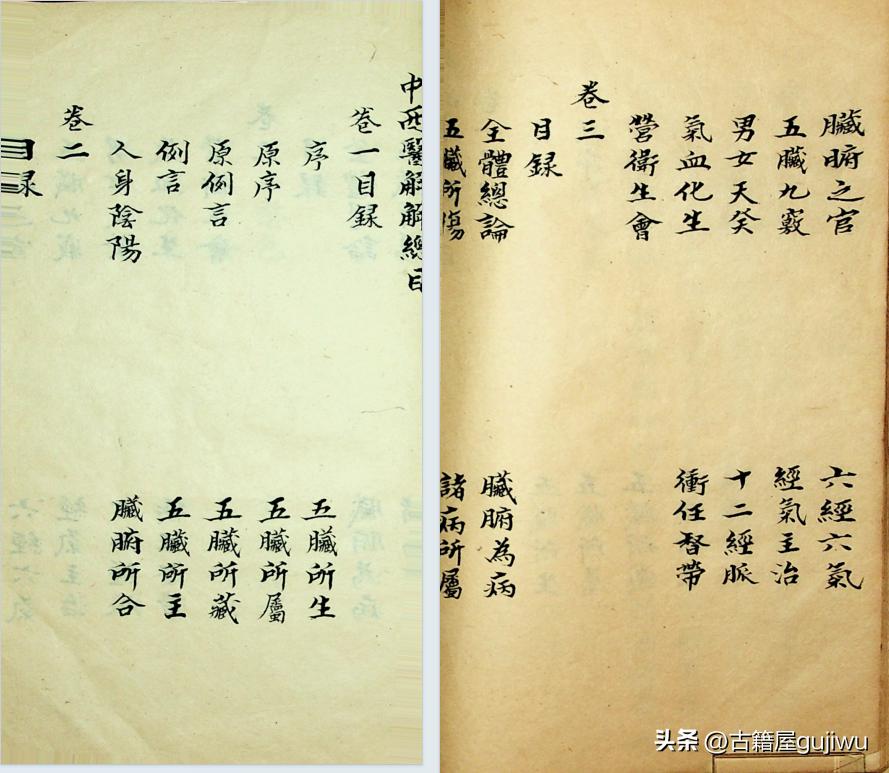 中西醫解解總目
卷一目録
序
五臟所生
原序
五臟所屬
原例言
五臟所藏
例言
五臟所主
人身陰陽
臟腑所合
卷二
目录
臟腑之官
六經六氣
五臟九竅
經氣主治
男女天癸
十二經脈
氣血化生
衝任督帶
營衛生會
卷三
目録
全體總論
臟腑為病
五臟所傷
諸病所屬
头条 @古籍屋gujiwu